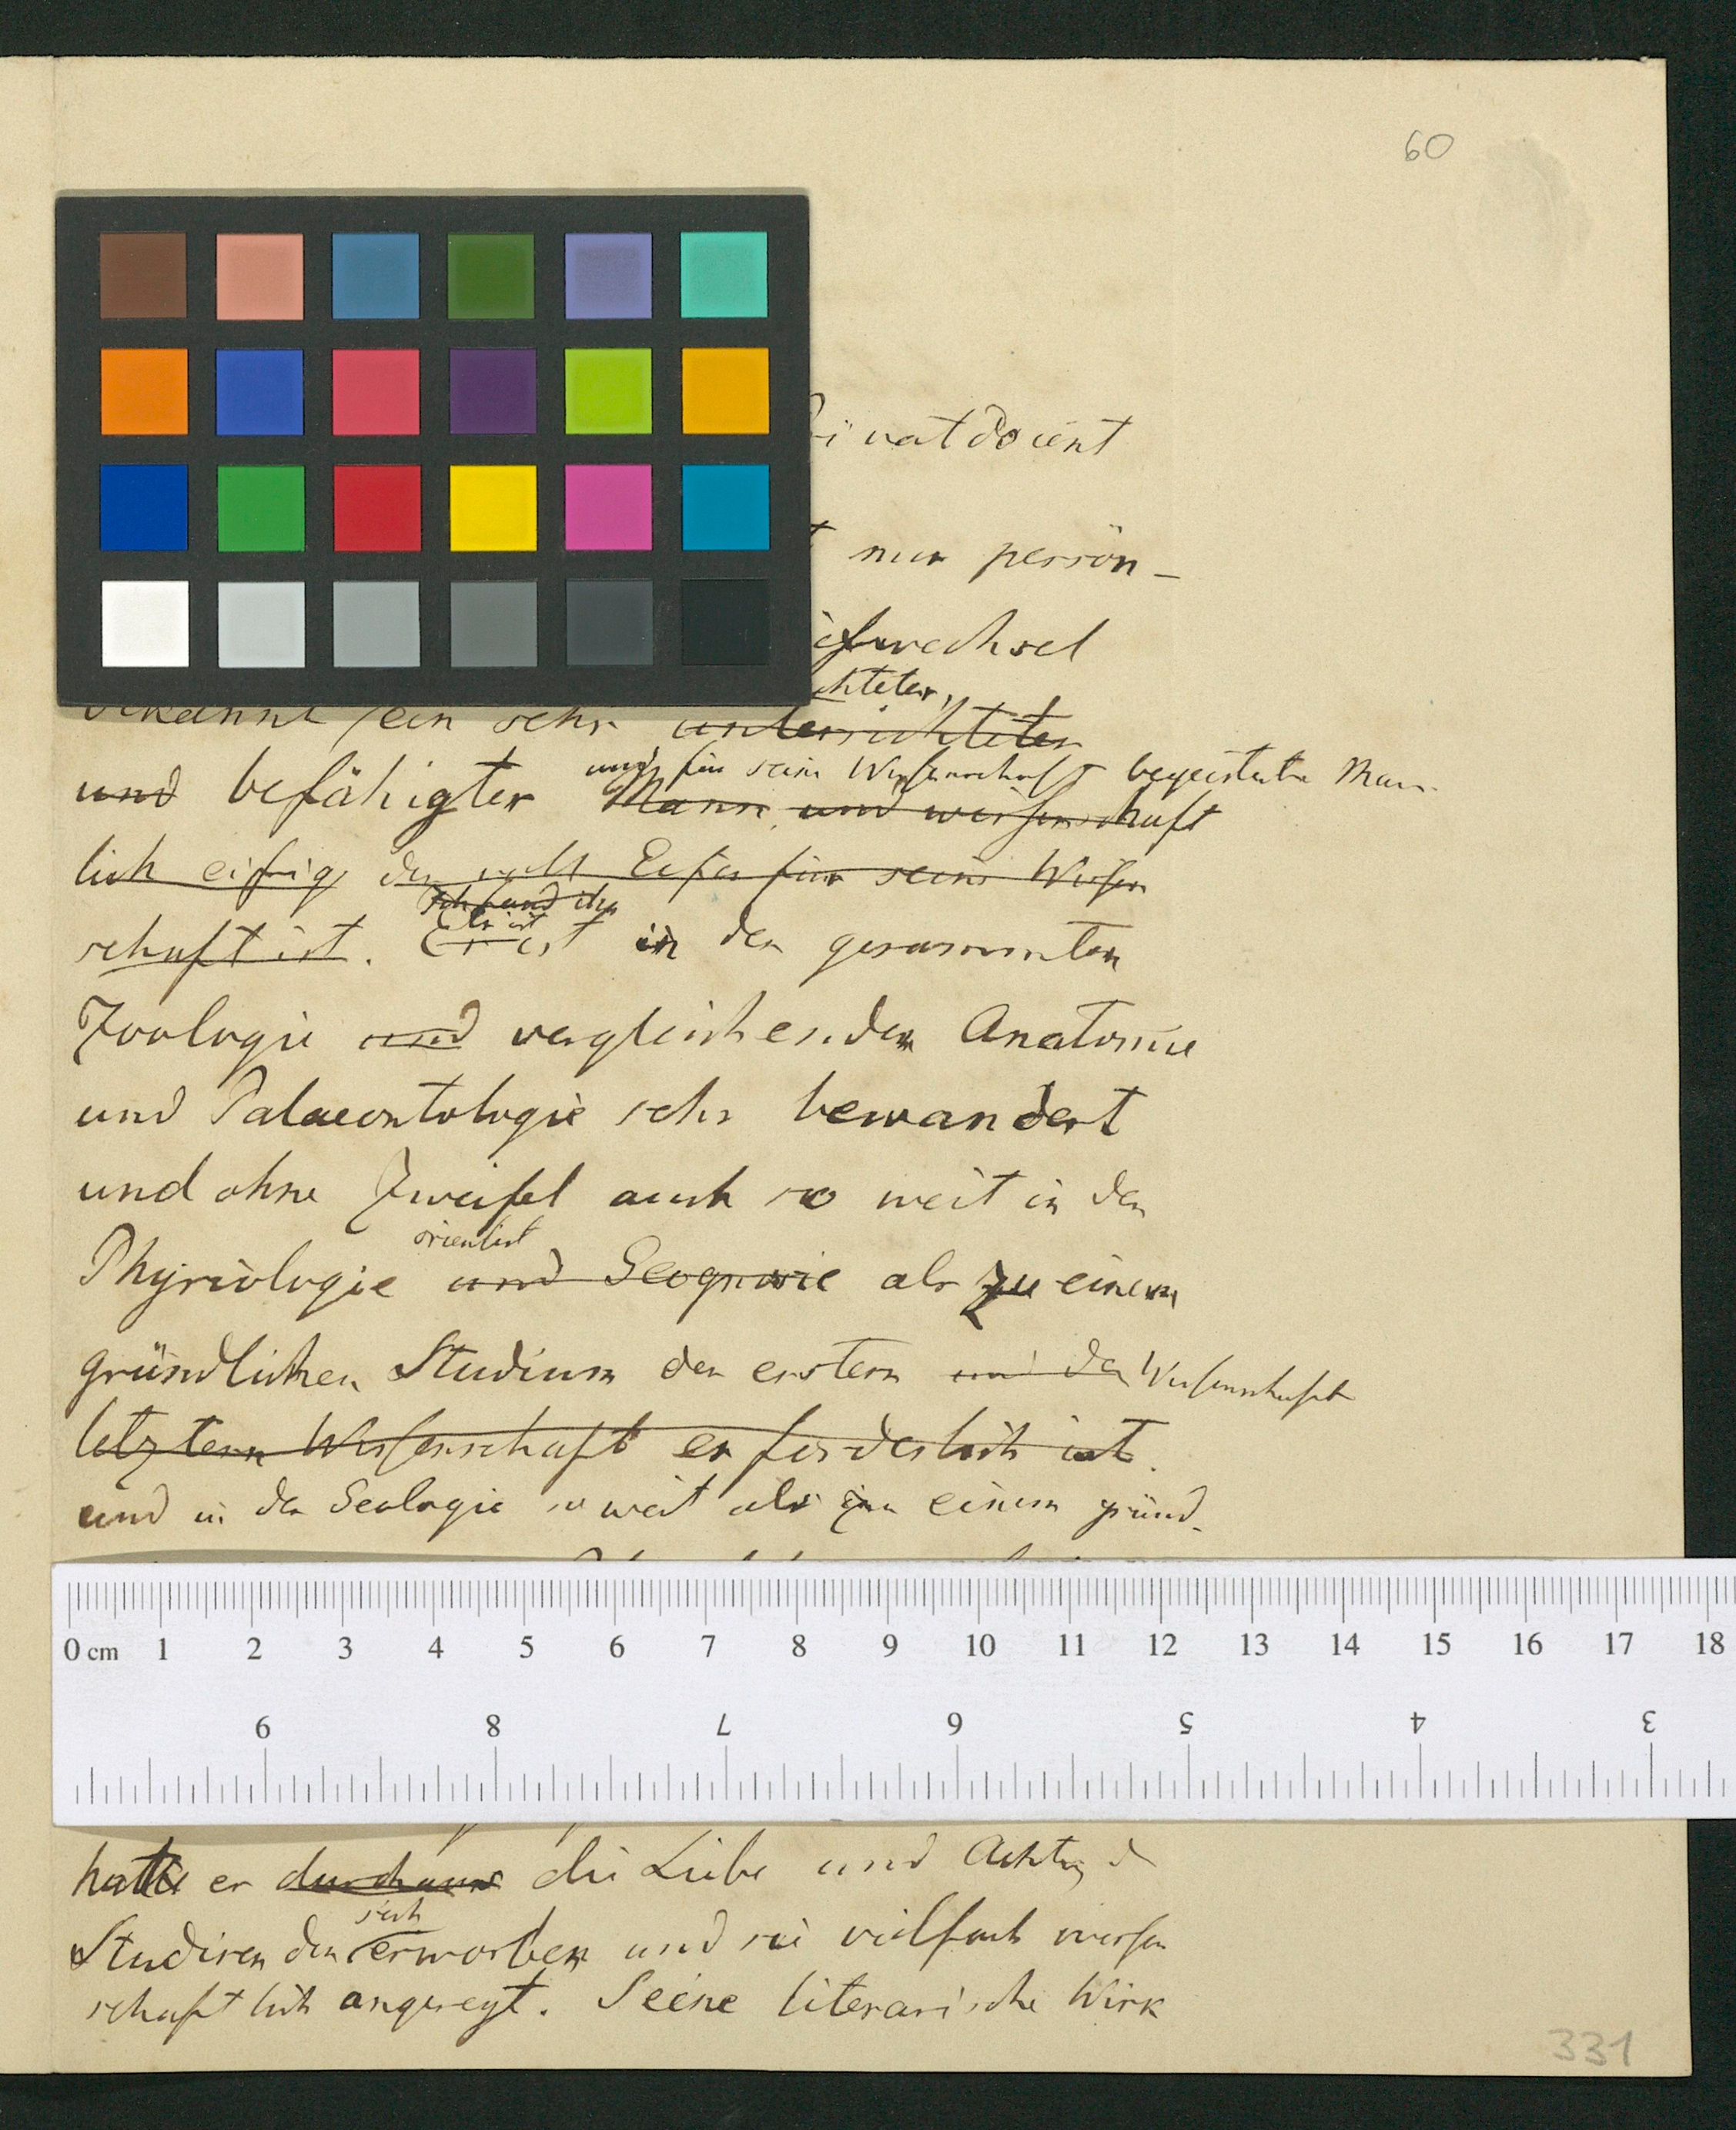 60
ivatdocent
nur persön-
iefwechsel
chteter,
bekannt, ein sehr unterrichteter
und für seine Wissenschaft begeisterter Mann.
und befähigter Mann und wissenschaft
lich eifrig, der voll Eifer für seine Wissen
ich fand ihn
Er ist
schaft ist. Er ist in der gesammten
Zoologie und vergleichenden Anatomie
und Palaeontologie sehr bewandert
und ohne Zweifel auch so weit in der
orientirt
Physiologie und Geognosie als zu einem
gründlichen Studium der erstern und der Wissenschaft
letztern Wissenschaft erforderlich ist.
und in der Geologie so weit als zu einem gründ-
0 cm 1 2 3 4 5 6 7 8 9 10 11 12 13 14 15 16 17 18
9 8 7 6 5 4 3
hatte er durchaus die Liebe und Achtung d
sich
Studirenden erworben und sie vielfach wissen
schaftlich angeregt. Seine literarische Wirk
331